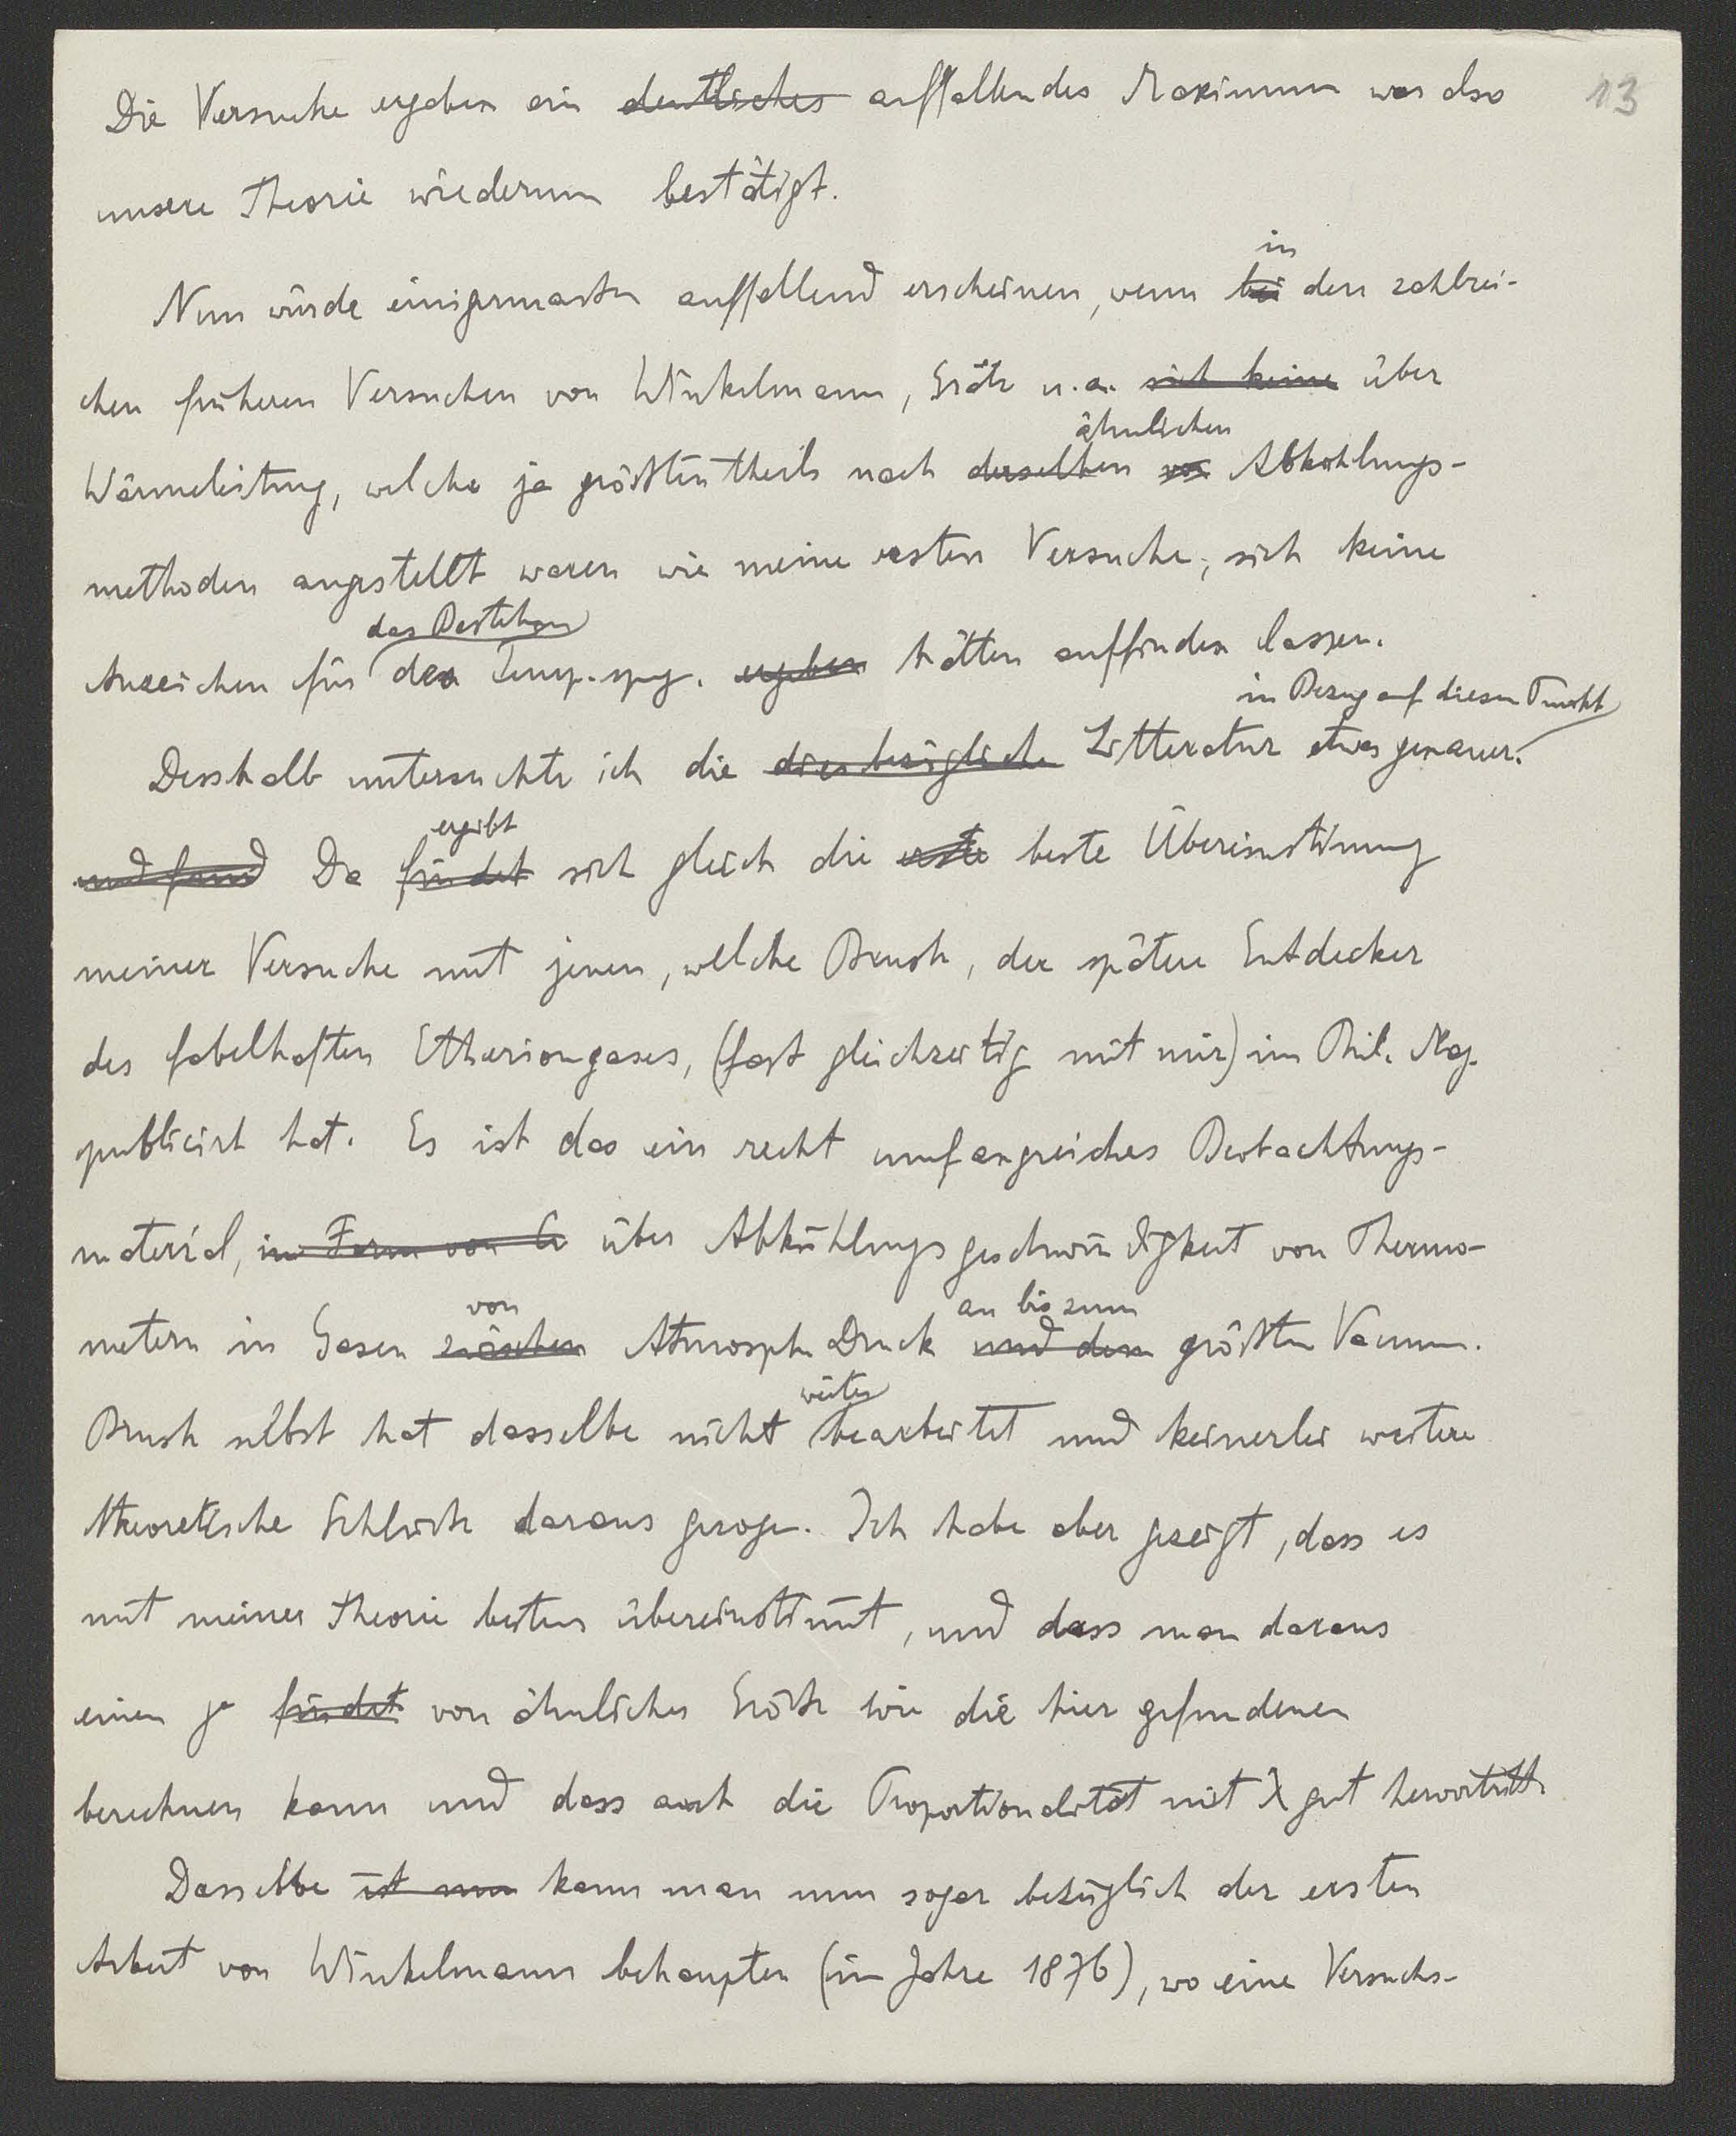 13
Die Versuche ergaben ein deutliches auffallendes Maximum was also
unsere Theorie wiederum bestätigt.
in
Nun würde einigermassen auffallend erscheinen, wenn bei den zahlrei-
chen früheren Versuchen von Winkelmann, Grätz u.a. sich keine über
ähnlichen
Wärmeleitung, welche ja grösstentheils nach derselben von Abkühlungs-
methoden angestellt waren wie meine ersten Versuche, sich keine
das Bestehen
Anzeichen für den Temp. spg. ergeben hätten auffinden lassen.
in Bezug auf diesen Punkt
Desshalb untersuchte ich die diesbezügliche Litteratur etwas genauer.
ergibt
und fand Da findet sich gleich die erste beste Übereinstimung
meiner Versuche mit jenen, welche Brush, der spätere Entdecker
des fabelhaften Etheriongases, (fast gleichzeitig mit mir) im Phil. Mag.
publicirt hat. Es ist das ein recht umfangreiches Beobachtungs-
material, in Form von über Abkühlungsgeschwindigkeit von Thermo-
von an bis zum
metern in Gasen zwischen Atmosph. Druck und dem grössten Vacuum.
weiter
Brush selbst hat dasselbe nicht bearbeitet und keinerlei weitere
theoretische Schlüsse daraus gezogen. Ich habe aber gezeigt, dass es
mit meiner Theorie bestens übereinstimt, und dass man daraus
einen γ findet von ähnlicher Grösse wie die hier gefundenen
berechnen kann und dass auch die Proportionalität mit λ gut hervortritt.
Dasselbe ist nun kann man nun sogar bezüglich der ersten
Arbeit von Winkelmann behaupten (im Jahre 1876), wo eine Versuchs-